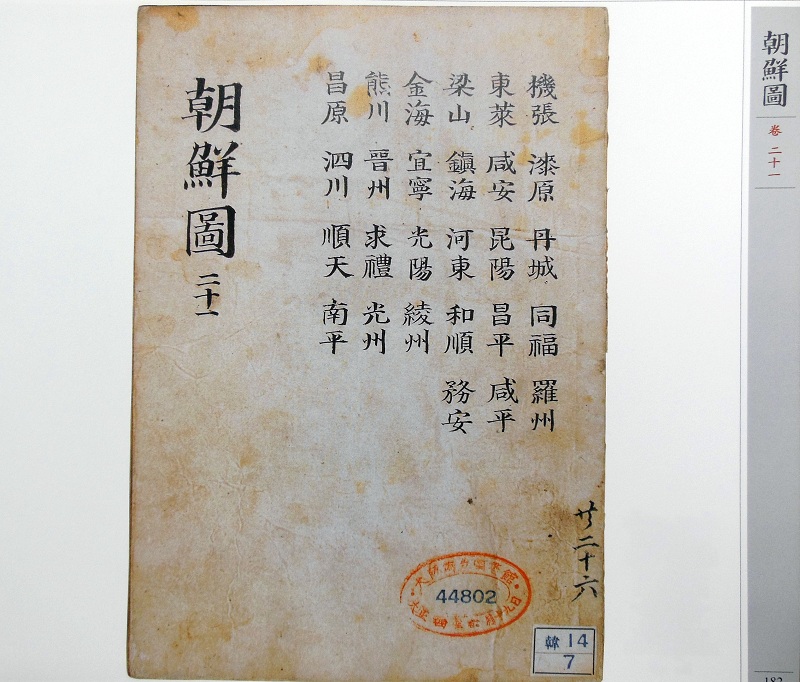 朝鮮圖
卷二十一
機張 漆原 丹城 同福 羅州
東萊 咸安 昆陽 昌平 咸平
梁山 鎭海 河東 和順 務安
金海 宜寧 光陽 綾州
熊川 晉州 求禮 光州
昌原 泗川 順天 南平
朝鮮圖 二十一
二十六
大阪府立圖書館
44802
韓 14
7